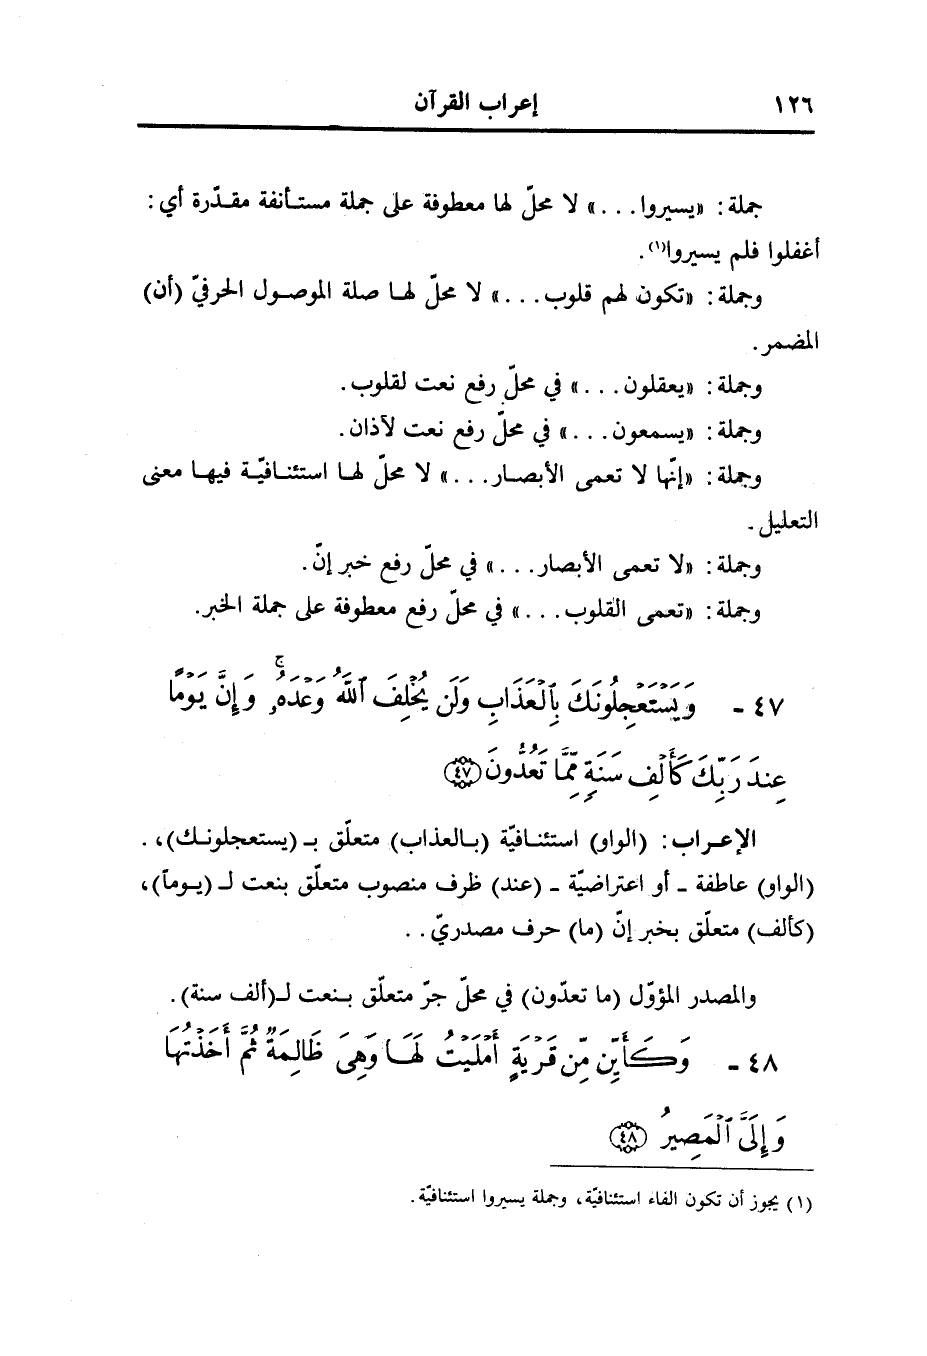 ١٢٦ إعراب القرآن
جملة: «يسيروا...» لا محلّ لها معطوفة على جملة مستأنفة مقدّرة أي:
أغفلوا فلم يسيروا(١).
وجملة: «تكون لهم قلوب...» لا محلّ لها صلة الموصول الحرفيّ (أن)
المضمر.
وجملة: «يعقلون...» في محلّ رفع نعت لقلوب.
وجملة: «يسمعون...» في محلّ رفع نعت لآذان.
وجملة: «إنّها لا تعمى الأبصار...» لا محلّ لها استئنافيّة فيها معنى
التعليل.
وجملة: «لا تعمى الأبصار...» في محلّ رفع خبر إنّ.
وجملة: «تعمى القلوب...» في محلّ رفع معطوفة على جملة الخبر.
٤٧ - وَيَسْتَعْجِلُونَكَ بِٱلْعَذَابِ وَلَن يُخْلِفَ ٱللَّهُ وَعْدَهُۥ ۚ وَإِنَّ يَوْمًا
عِندَ رَبِّكَ كَأَلْفِ سَنَةٍ مِّمَّا تَعُدُّونَ ﴿٤٧﴾
الإعراب: (الواو) استئنافيّة (بالعذاب) متعلّق بـ (يستعجلونك)، .
(الواو) عاطفة - أو اعتراضيّة - (عند) ظرف منصوب متعلّق بنعت لـ (يوماً)،
(كألف) متعلّق بخبر إنّ (ما) حرف مصدريّ..
والمصدر المؤوّل (ما تعدّون) في محلّ جرّ متعلّق بنعت لـ(ألف سنة).
٤٨ - وَكَأَيِّن مِّن قَرْيَةٍ أَمْلَيْتُ لَهَا وَهِىَ ظَالِمَةٌ ثُمَّ أَخَذْتُهَا
وَإِلَىَّ ٱلْمَصِيرُ ﴿٤٨﴾
(١) يجوز أن تكون الفاء استئنافيّة، وجملة يسيروا استئنافيّة.